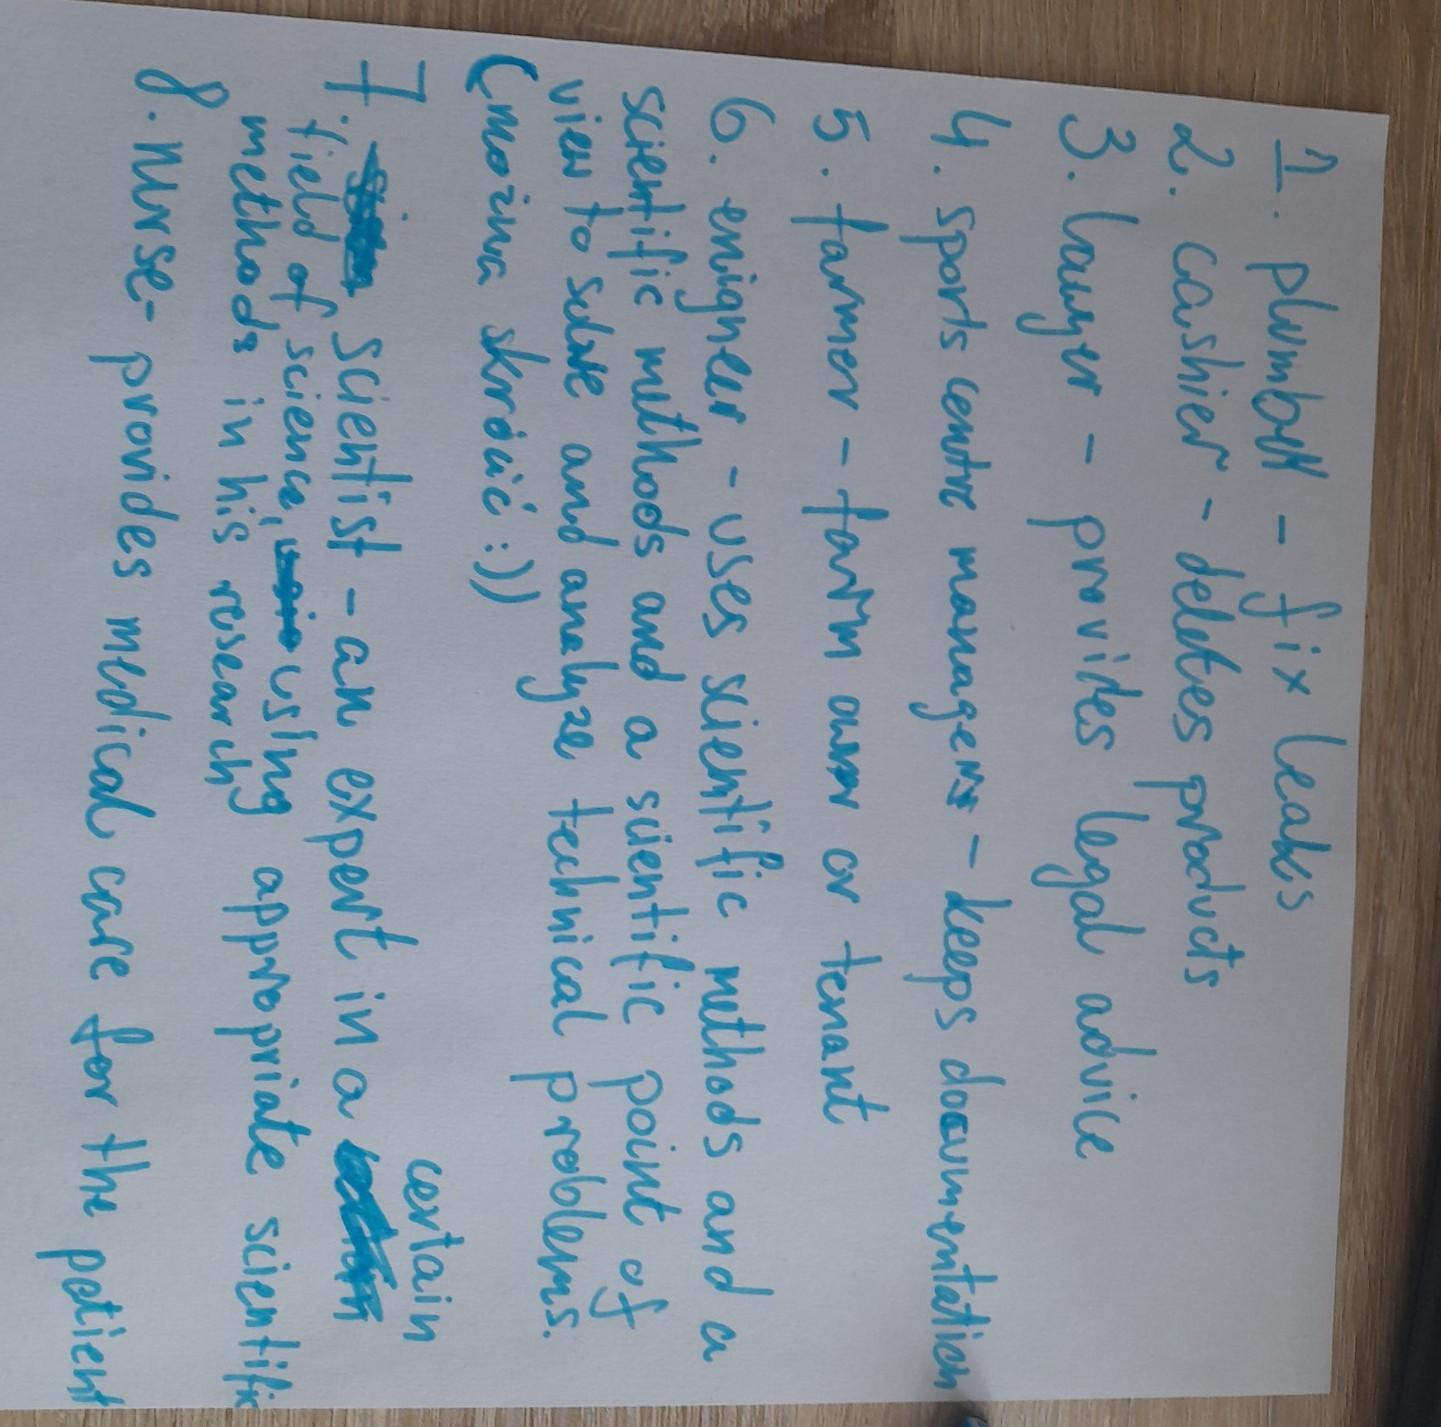 1. plumber - fix leaks
2. cashier - deletes products
3. lawyer - provides legal advice
4. sports centre managers - keeps documentation
5. farmer - farm owner or tenant
6. enigneer - uses scientific methods and a
scientific methods and a scientific point of
view to solve and analyze technical problems.
(można skrócić :))
certain
7. scientist - an expert in a
field of science, using appropriate scientific
methods in his research
8. Nurse - provides medical care for the patient